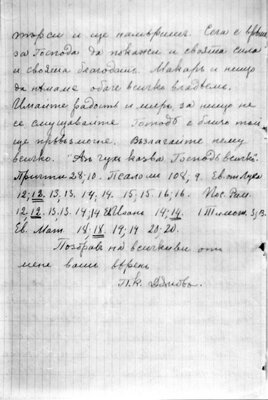 търси и ще намѣрите. Сега е время
за Господа да покажи и своята сила
и своята благодать. Макаръ и нищо
да нѣмаме обаче всичко владѣемъ.
Имайте радость и миръ за нищо не
се смущавайте Господь е близо той
ще превъзмогне. Възлагайте нему
всичко. Азъ чухъ казва Господь всичко.
Притчи 28; 10. Псаломъ 108, 9. Ев. отъ Лука
12; 12. 13, 13. 14, 14. 15; 15. 16; 16. Пос. Рим.
12; 12. 13. 13. 14; 14 Иоана 14; 14. 1 Тимот. 3; 13.
Ев. Мат 18; 18. 19; 19 20-20.
Поздравъ на всички ви отъ
мене вашъ вѣренъ
П. К. Дѫновъ